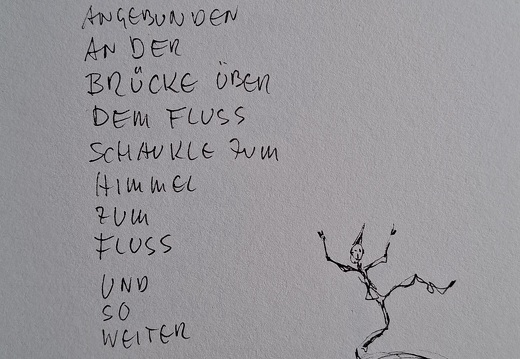 ANGEBUNDEN
AN DER
BRÜCKE ÜBER
DEM FLUSS
SCHAUKLE ZUM
HIMMEL
ZUM
FLUSS
UND
SO
WEITER